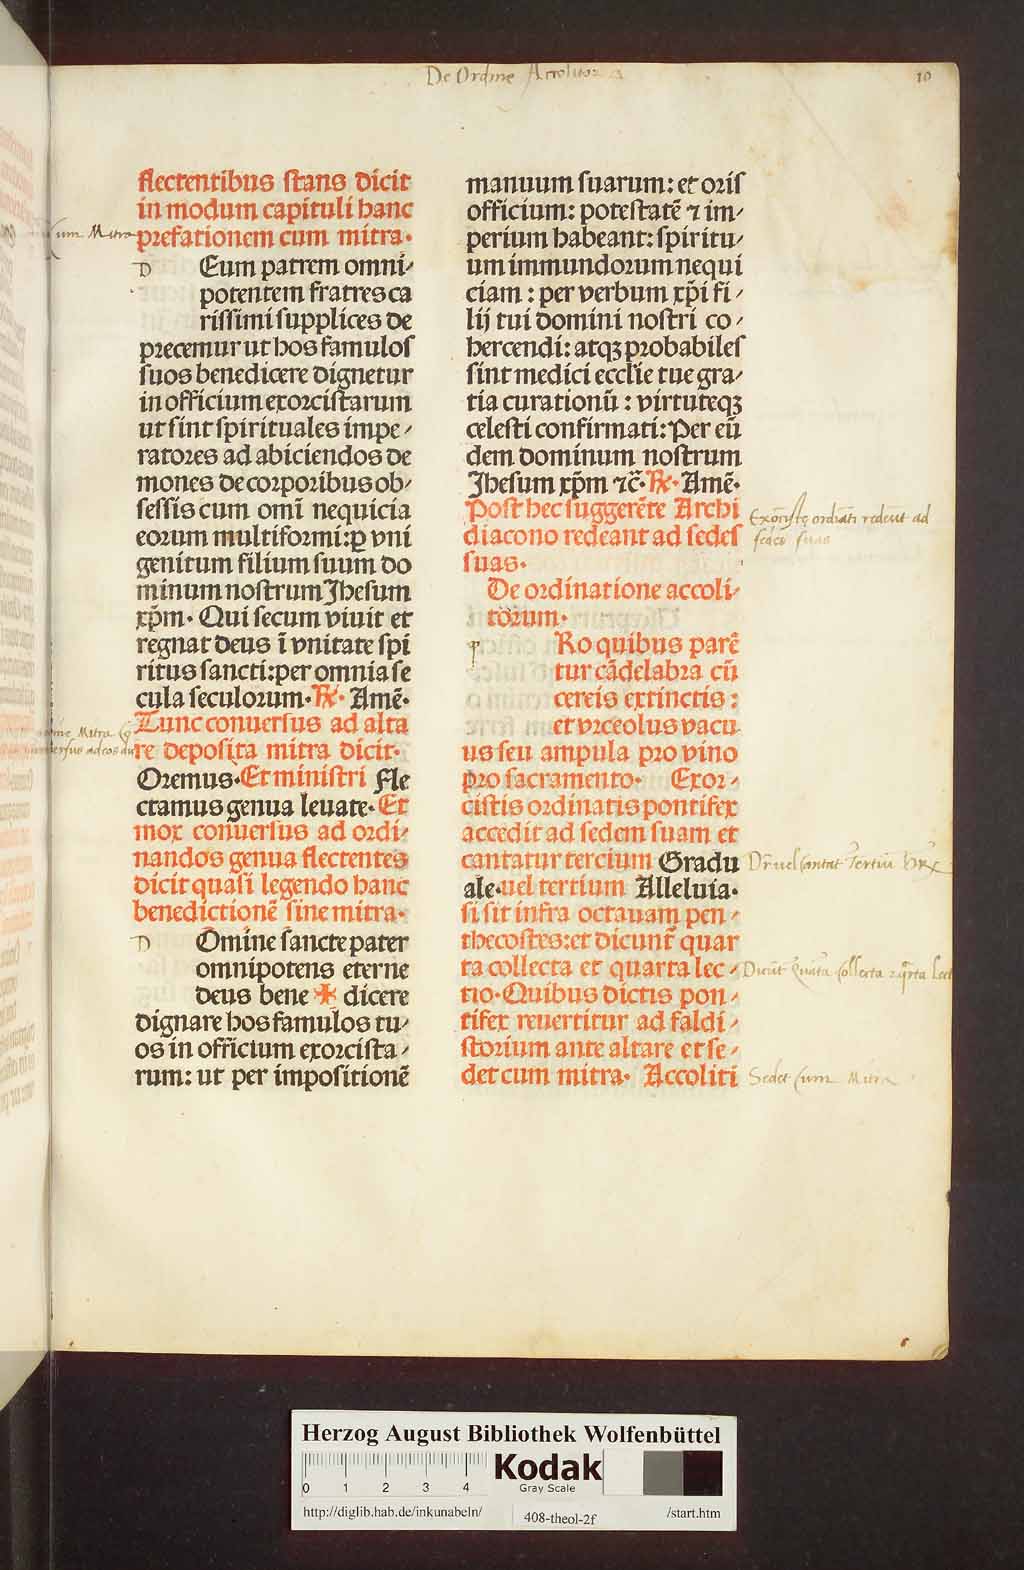 De Ordine Accolitor
10
flectentibus stans dicit
in modum capituli hanc
prefationem cum mitra.
Cum Mitra
D Eum patrem omni-
potentem fratres ca
rissimi supplices de
precemur ut hos famulos
suos benedicere dignetur
in officium exorcistarum
ut sint spirituales impe-
ratores ad abiciendos de
mones de corporibus ob-
sessis cum om̄i nequicia
eorum multiformi: ꝑ vni
genitum filium suum do
minum nostrum Jhesum
xp̄m. Qui secum viuit et
regnat deus ī vnitate spi
ritus sancti: per omnia se
cula seculorum. ℟. Amē.
Tunc conuersus ad alta
re deposita mitra dicit.
Oremus. Et ministri Fle
ctamus genua leuate. Et
mox conuersus ad ordi-
nandos genua flectentes
dicit quasi legendo hanc
benedictionē sine mitra.
D Omine sancte pater
omnipotens eterne
deus bene ✠ dicere
dignare hos famulos tu-
os in officium exorcista-
rum: ut per impositionē
manuum suarum: et oris
officium: potestatē ⁊ im-
perium habeant: spiritu-
um immundorum nequi
ciam: per verbum xp̄i fi-
lij tui domini nostri co-
hercendi: atqꝫ probabiles
sint medici ecclie tue gra-
tia curationū: virtuteqꝫ
celesti confirmati: Per eū
dem dominum nostrum
Jhesum xp̄m ⁊c̄. ℟. Amē.
Post hec suggerēte Archi
diacono redeant ad sedes
suas.
Exorciste ordinati redeut ad
sedes suas
De ordinatione accoli-
torum.
P Ro quibus parē
tur cādelabra cū
cereis extinctis:
et vrceolus vacu
us seu ampula pro vino
pro sacramento. Exor-
cistis ordinatis pontifex
accedit ad sedem suam et
cantatur tercium Gradu
ale. uel tertium Alleluia.
si sit infra octauam pen-
thecostes: et dicunt̄ quar
ta collecta et quarta lec-
tio. Quibus dictis pon-
tifex reuertitur ad faldi-
storium ante altare et se-
det cum mitra. Accoliti
Sedet Cum Mitra
Herzog August Bibliothek Wolfenbüttel
0 1 2 3 4
Kodak
Gray Scale
http://diglib.hab.de/inkunabeln/ 408-theol-2f /start.htm